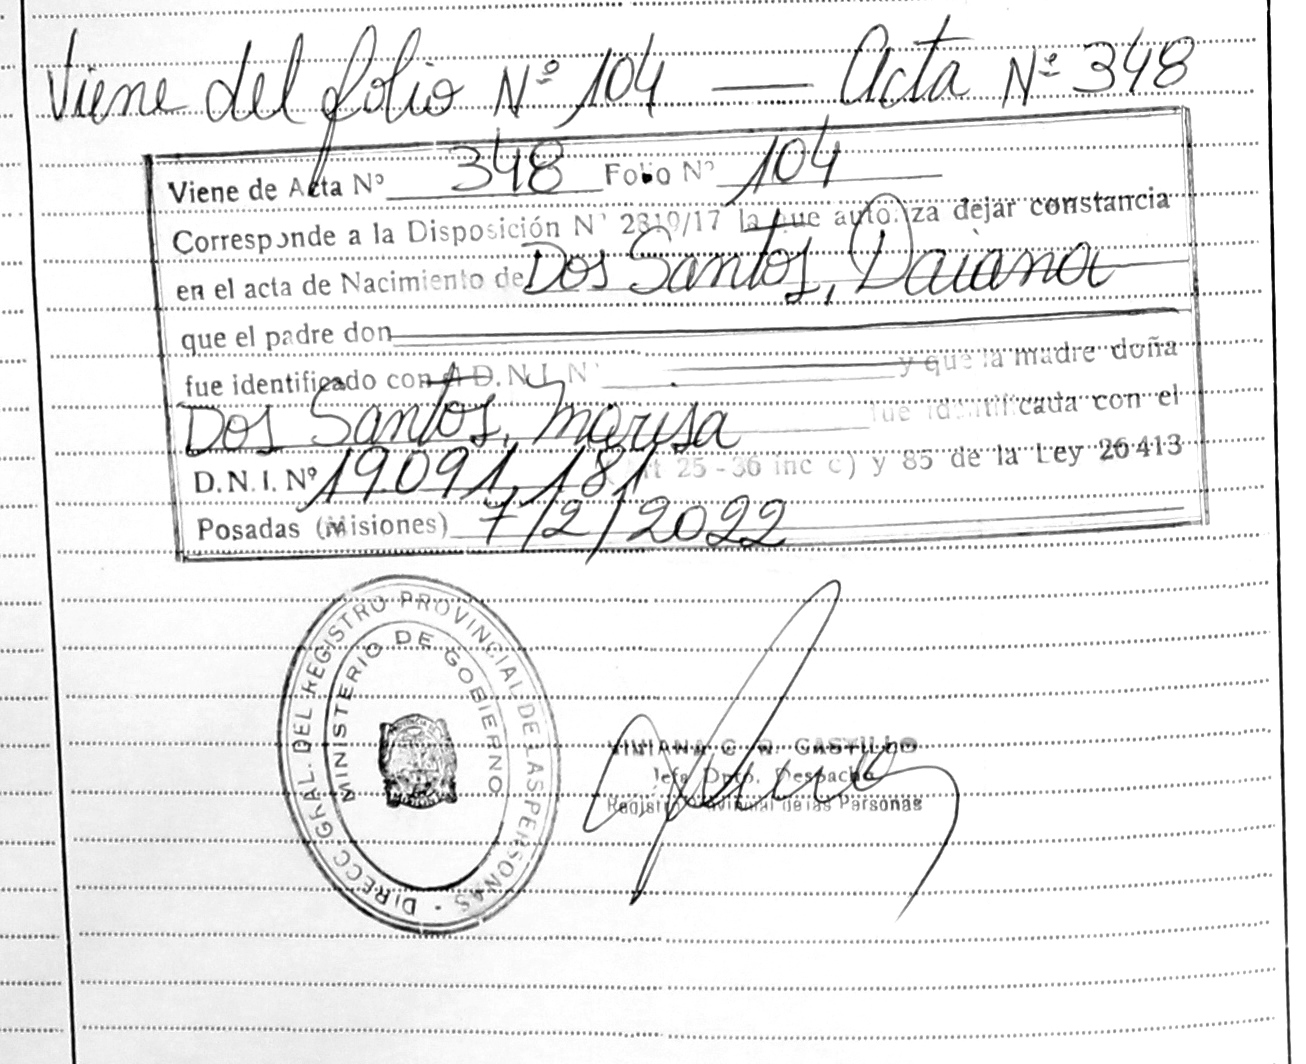 Viene del folio Nº 104 — Acta Nº 348
Viene de Acta Nº 348 Folio Nº 104
Corresponde a la Disposición Nº 2819/17 la que autoriza dejar constancia
en el acta de Nacimiento de Dos Santos, Daiana
que el padre don
fue identificado con D.N.I. Nº y que la madre doña
Dos Santos, Marisa fue identificada con el
D.N.I. Nº 19091.181 25-36 inc c) y 85 de la Ley 26413
Posadas (Misiones) 7/2/2022
DIRECC. GRAL. DEL REGISTRO PROVINCIAL DE LAS PERSONAS -
MINISTERIO DE GOBIERNO
VIVIANA C. R. CASTILLO
Jefa Dpto. Despacho
Registro Provincial de las Personas